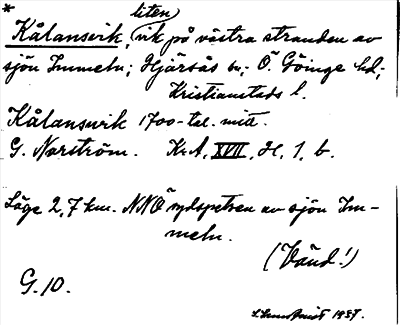 * liten
Kålansvik, vik på västra stranden av
sjön Immeln; Hjärsås sn; Ö. Göinge hd;
Kristianstads l.
Kålansvik 1700-tal. mitt.
G. Norström. Kr. A, XVII, H, 1, b.
Läge 2,7 km. NNÖ sydspetsen av sjön Im-
meln.
(Vänd!)
G. 10.
1937.